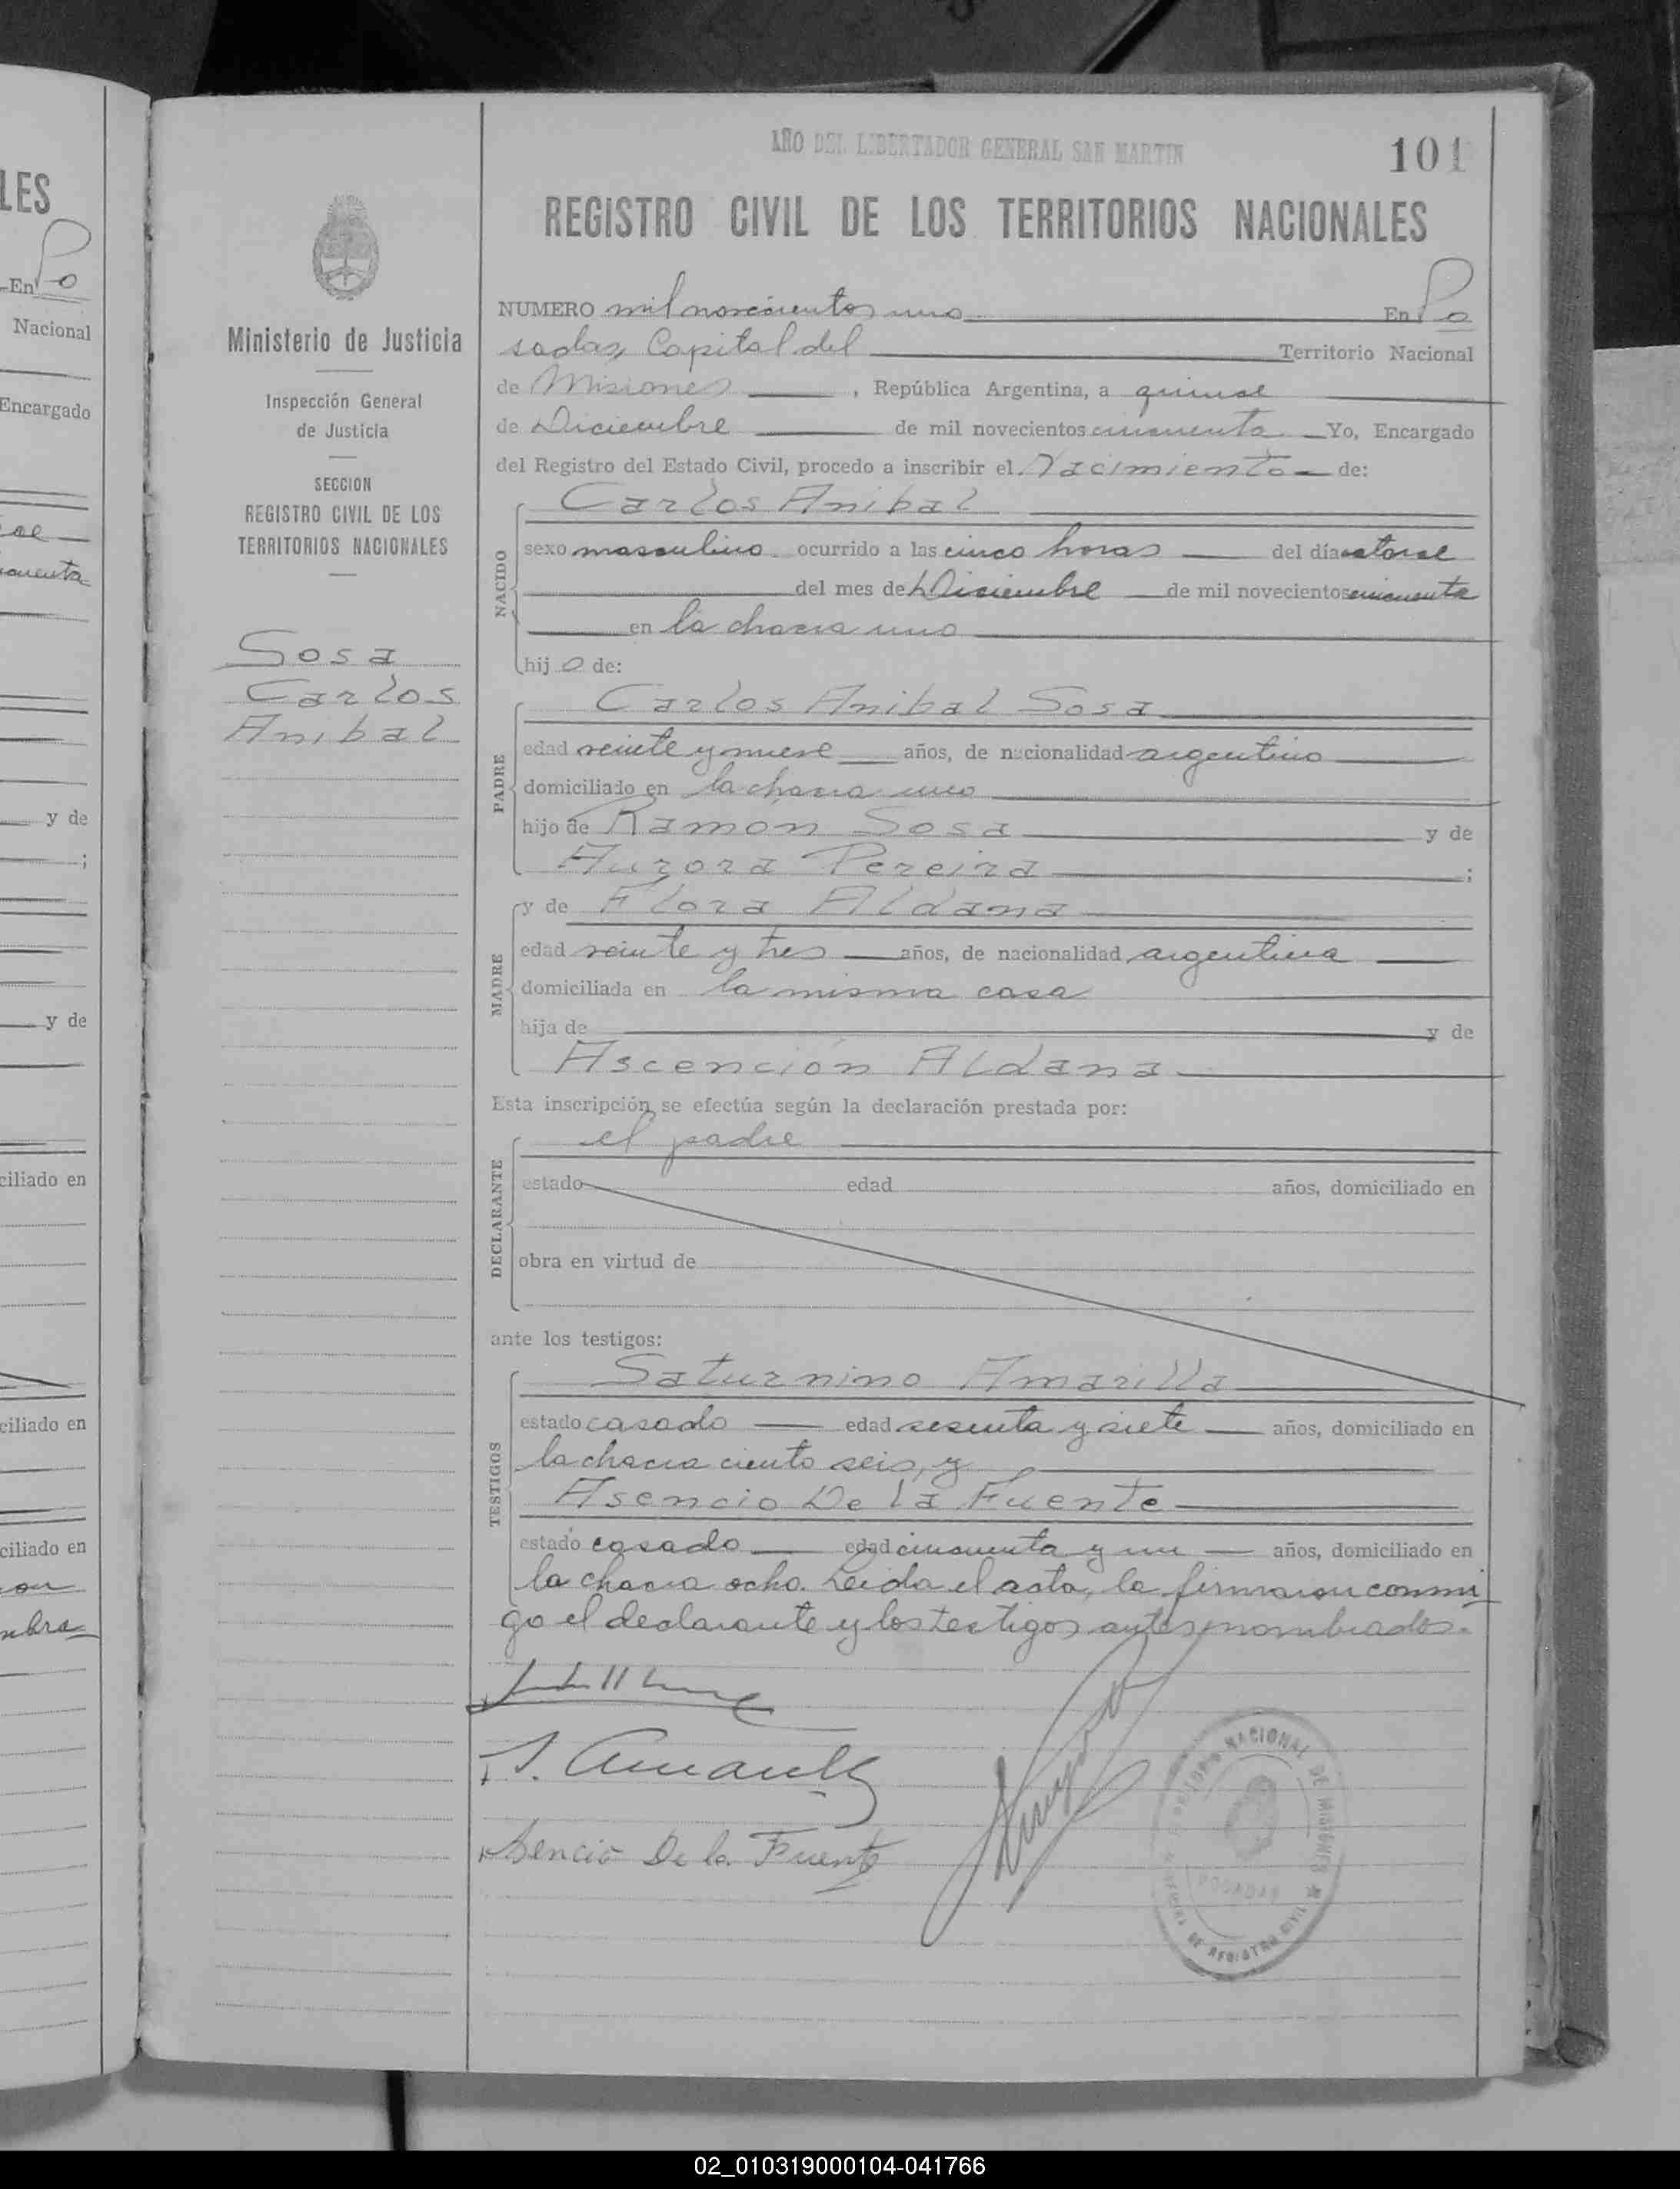 LES
En Po
Nacional
Encargado
y de
;
y de
ciliado en
ciliado en
ciliado en
AÑO DEL LIBERTADOR GENERAL SAN MARTIN
101
Ministerio de Justicia
Inspección General
de Justicia
SECCION
REGISTRO CIVIL DE LOS
TERRITORIOS NACIONALES
Sosa
Carlos
Anibal
REGISTRO CIVIL DE LOS TERRITORIOS NACIONALES
NUMERO mil novecientos uno En Po
sadas, Capital del Territorio Nacional
de Misiones, República Argentina, a quince
de Diciembre de mil novecientos cincuenta Yo, Encargado
del Registro del Estado Civil, procedo a inscribir el Nacimiento de:
NACIDO
Carlos Anibal
sexo masculino ocurrido a las cinco horas del día catorce
del mes de Diciembre de mil novecientos cincuenta
en la chacra uno
hij o de:
PADRE
Carlos Anibal Sosa
edad veinte y nueve años, de nacionalidad argentino
domiciliado en la chacra uno
hijo de Ramón Sosa y de
Aurora Pereira ;
MADRE
y de Flora Aldana
edad veinte y tres años, de nacionalidad argentina
domiciliada en la misma casa
hija de y de
Ascención Aldana
Esta inscripción se efectúa según la declaración prestada por:
DECLARANTE
el padre
estado edad años, domiciliado en
obra en virtud de
ante los testigos:
TESTIGOS
Saturnino Amarilla
estado casado edad sesenta y siete años, domiciliado en
la chacra ciento seis, y
Asencio De la Fuente
estado casado edad cincuenta y un años, domiciliado en
la chacra ocho. Leida el acta, la firmaron conmi
go el declarante y los testigos antes nombrados.
S. Amarilla
Asencio De la Fuente
NACIONAL DE MISIONES
POSADAS
DE REGISTRO CIVIL
02_010319000104-041766